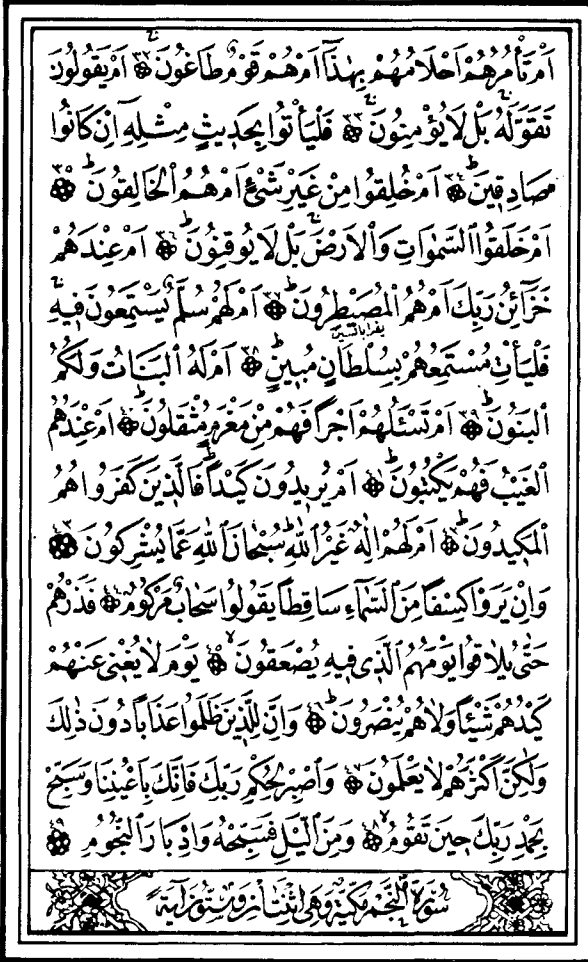 اَمْ تَأْمُرُهُمْ اَحْلَامُهُمْ بِهٰذَٓا اَمْ هُمْ قَوْمٌ طَاغُونَ ﴿٣٢﴾ اَمْ يَقُولُونَ
تَقَوَّلَهُ بَلْ لَا يُؤْمِنُونَ ﴿٣٣﴾ فَلْيَأْتُوا بِحَدِيثٍ مِثْلِهِٓ اِنْ كَانُوا
صَادِقِينَ ﴿٣٤﴾ اَمْ خُلِقُوا مِنْ غَيْرِ شَيْءٍ اَمْ هُمُ الْخَالِقُونَ ﴿٣٥﴾
اَمْ خَلَقُوا السَّمٰوَاتِ وَالْاَرْضَ بَلْ لَا يُوقِنُونَ ﴿٣٦﴾ اَمْ عِنْدَهُمْ
خَزَٓائِنُ رَبِّكَ اَمْ هُمُ الْمُصَيْطِرُونَ ﴿٣٧﴾ اَمْ لَهُمْ سُلَّمٌ يَسْتَمِعُونَ فِيهِ
يقرأ بالسين
فَلْيَأْتِ مُسْتَمِعُهُمْ بِسُلْطَانٍ مُبِينٍ ﴿٣٨﴾ اَمْ لَهُ الْبَنَاتُ وَلَكُمُ
الْبَنُونَ ﴿٣٩﴾ اَمْ تَسْـَٔلُهُمْ اَجْرًا فَهُمْ مِنْ مَغْرَمٍ مُثْقَلُونَ ﴿٤٠﴾ اَمْ عِنْدَهُمُ
الْغَيْبُ فَهُمْ يَكْتُبُونَ ﴿٤١﴾ اَمْ يُرِيدُونَ كَيْدًا فَالَّذِينَ كَفَرُوا هُمُ
الْمَكِيدُونَ ﴿٤٢﴾ اَمْ لَهُمْ اِلٰهٌ غَيْرُ اللّٰهِ سُبْحَانَ اللّٰهِ عَمَّا يُشْرِكُونَ ﴿٤٣﴾
وَاِنْ يَرَوْا كِسْفًا مِنَ السَّمَٓاءِ سَاقِطًا يَقُولُوا سَحَابٌ مَرْكُومٌ ﴿٤٤﴾ فَذَرْهُمْ
حَتّٰى يُلَاقُوا يَوْمَهُمُ الَّذِي فِيهِ يُصْعَقُونَ ﴿٤٥﴾ يَوْمَ لَا يُغْنِي عَنْهُمْ
كَيْدُهُمْ شَيْئًا وَلَا هُمْ يُنْصَرُونَ ﴿٤٦﴾ وَاِنَّ لِلَّذِينَ ظَلَمُوا عَذَابًا دُونَ ذٰلِكَ
وَلٰكِنَّ اَكْثَرَهُمْ لَا يَعْلَمُونَ ﴿٤٧﴾ وَاصْبِرْ لِحُكْمِ رَبِّكَ فَاِنَّكَ بِاَعْيُنِنَا وَسَبِّحْ
بِحَمْدِ رَبِّكَ حِينَ تَقُومُ ﴿٤٨﴾ وَمِنَ الَّيْلِ فَسَبِّحْهُ وَاِدْبَارَ النُّجُومِ ﴿٤٩﴾
سُورَةُ النَّجْمِ مَكِّيَّةٌ وَهِيَ اثْنَتَانِ وَسِتُّونَ اٰيَةً